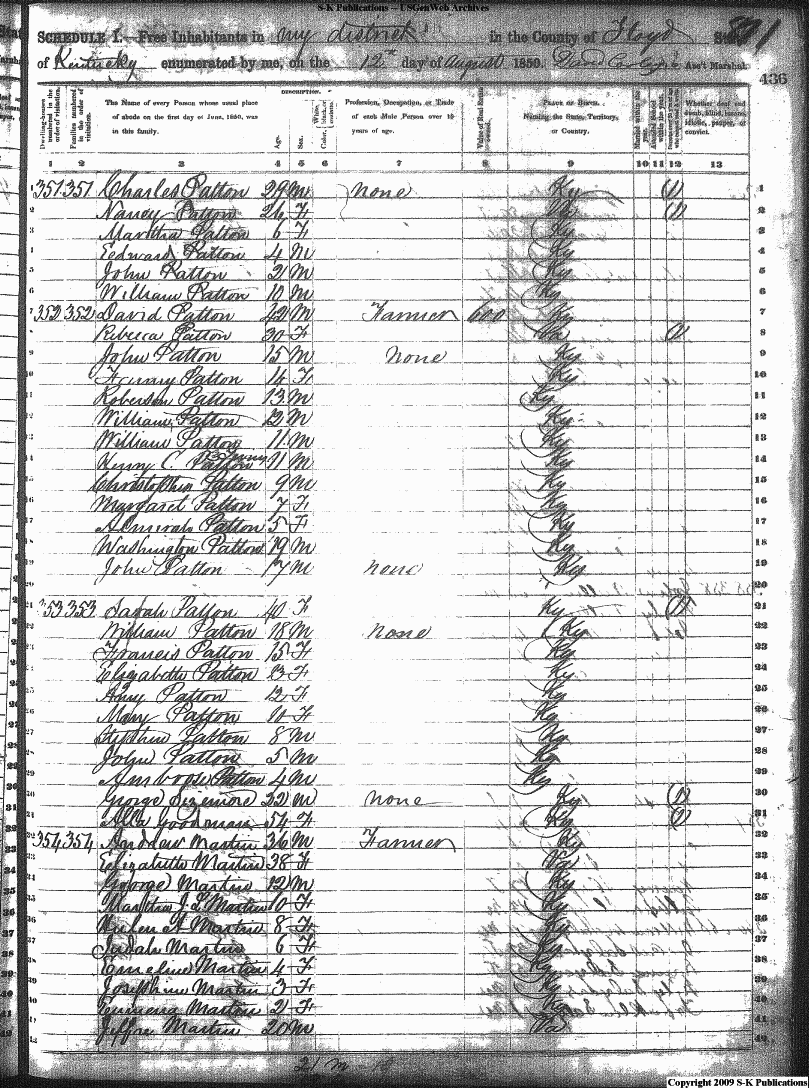 S-K Publications -- USGenWeb Archives
SCHEDULE I.—Free Inhabitants in my district in the County of Floyd State
of Kentucky enumerated by me, on the 12th day of August 1850. Ass't Marshal.
436
DESCRIPTION.
Dwelling-houses numbered in the order of visitation. Families numbered in the order of visitation. The Name of every Person whose usual place of abode on the first day of June, 1850, was in this family. Age. Sex. Color, White, black, or mulatto. Profession, Occupation, or Trade of each Male Person over 15 years of age. Value of Real Estate owned. PLACE OF BIRTH. Naming the State, Territory, or Country. Married within the year. Attended School within the year. Whether deaf and dumb, blind, insane, idiotic, pauper, or convict.
1 2 3 4 5 6 7 8 9 10 11 12 13
1 351 351 Charles Patton 29 M none Ky (1) 1
2 Nancy Patton 26 F (1) 2
3 Martha Patton 6 F Ky 3
4 Eedward Patton 4 M Ky 4
5 John Patton 2 M Ky 5
6 William Patton 10 M Ky 6
7 352 352 David Patton 42 M Farmer 600 Ky 7
8 Rebecca Patton 30 F Va (1) 8
9 John Patton 15 M none Ky 9
10 Fanny Patton 14 F Ky 10
11 Roberson Patton 13 M Ky 11
12 William Patton 12 M Ky 12
13 William Patton 11 M Ky 13
14 Henry C. Patton 11 M Ky 14
15 Christopher Patton 9 M Ky 15
16 Margaret Patton 7 F Ky 16
17 Almirah Patton 5 F Ky 17
18 Washington Patton 19 M Ky 18
19 John Patton 17 M none Ky 19
20 20
21 353 353 Sarah Patton 40 F Ky (1) 21
22 William Patton 18 M none Ky 22
23 Francis Patton 15 F Ky 23
24 Elizabeth Patton 13 F Ky 24
25 Amy Patton 12 F Ky 25
26 Mary Patton 10 F Ky 26
27 Stephen Patton 8 M Ky 27
28 John Patton 5 M Ky 28
29 Ambrose Patton 4 M Ky 29
30 George Sizemore 22 M none Ky (1) 30
31 Goodman 54 F Ky (1) 31
32 354 354 Andrew Martin 36 M Farmer Ky 32
33 Elizabeth Martin 38 F Va 33
34 George Martin 12 M Ky 34
35 Martha J. L. Martin 10 F Ky 35
36 Martin 8 F Ky 36
37 Judah Martin 6 F Ky 37
38 Emeline Martin 4 F Ky 38
39 Josephine Martin 3 F Ky 39
40 Martin 2 F Ky 40
41 Martin 20 M Va
21 M
Copyright 2009 S-K Publications